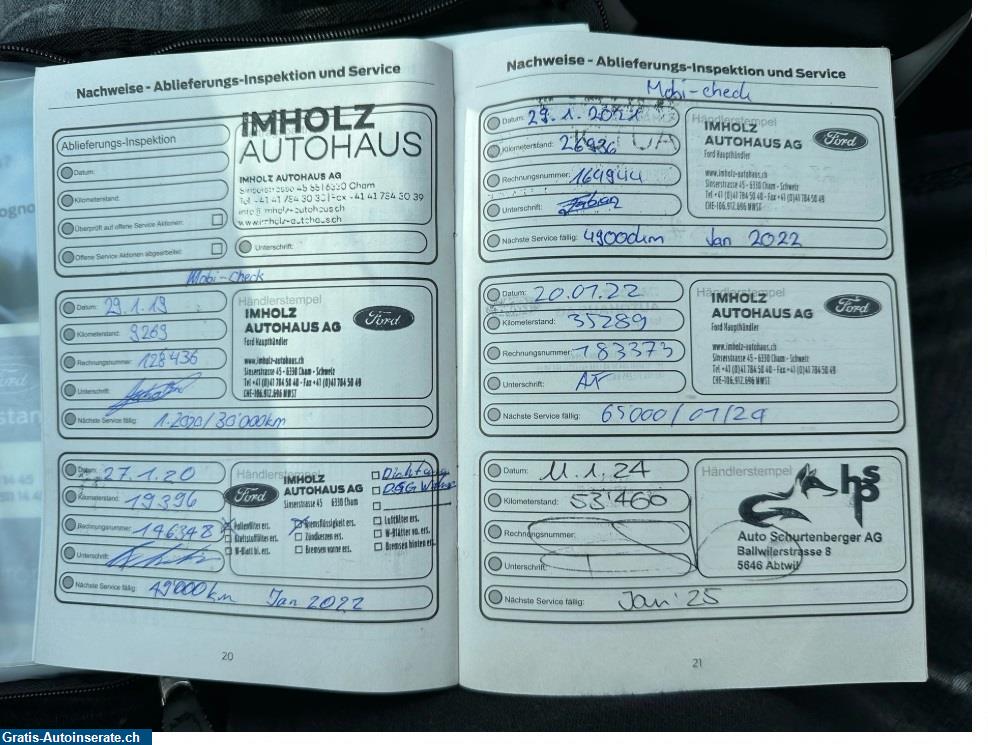 Nachweise - Ablieferungs-Inspektion und Service
Ablieferungs-Inspektion
Datum:
Kilometerstand:
Überprüft auf offene Service Aktionen:
Offene Service Aktionen abgearbeitet:
IMHOLZ
AUTOHAUS
IMHOLZ AUTOHAUS AG
Sinserstrasse 45 6330 Cham
Tel +41 41 784 30 30 Fax +41 41 784 30 39
info@imholz-autohaus.ch
www.imholz-autohaus.ch
Unterschrift:
Mobi-check
Datum: 29.1.19
Kilometerstand: 9269
Rechnungsnummer: 128436
Unterschrift:
Händlerstempel
IMHOLZ
AUTOHAUS AG
Ford
Ford Haupthändler
www.imholz-autohaus.ch
Sinserstrasse 45 - 6330 Cham - Schweiz
Tel +41 (0)41 784 50 40 - Fax +41 (0)41 784 50 49
CHE-106.912.696 MWST
Nächste Service fällig: 1.2020/30'000km
Datum: 27.1.20
Kilometerstand: 19396
Rechnungsnummer: 146348
Unterschrift:
Händlerstempel
Ford
IMHOLZ
AUTOHAUS AG
Sinserstrasse 45 6330 Cham
Pollenfilter ers.
Bremsflüssigkeit ers.
Luftfilter ers.
Kraftstofffilter ers.
Zündkerzen ers.
W-Blätter vo. ers.
W-Blatt hi. ers.
Bremsen vorne ers.
Bremsen hinten ers.
Nächste Service fällig: 49'000km Jan 2022
20
Nachweise - Ablieferungs-Inspektion und Service
Mobi-check
Datum: 29.1.2021
Kilometerstand: 26936
Rechnungsnummer: 164944
Unterschrift:
Händlerstempel
IMHOLZ
AUTOHAUS AG
Ford
Ford Haupthändler
www.imholz-autohaus.ch
Sinserstrasse 45 - 6330 Cham - Schweiz
Tel +41 (0)41 784 50 40 - Fax +41 (0)41 784 50 49
CHE-106.912.696 MWST
Nächste Service fällig: 49000km Jan 2022
Datum: 20.01.22
Kilometerstand: 35289
Rechnungsnummer: 183373
Unterschrift:
Händlerstempel
IMHOLZ
AUTOHAUS AG
Ford
Ford Haupthändler
www.imholz-autohaus.ch
Sinserstrasse 45 - 6330 Cham - Schweiz
Tel +41 (0)41 784 50 40 - Fax +41 (0)41 784 50 49
CHE-106.912.696 MWST
Nächste Service fällig: 65000/01/24
Datum: 11.1.24
Kilometerstand: 53'460
Rechnungsnummer:
Unterschrift:
Händlerstempel
hsp
Auto Schurtenberger AG
Ballwilerstrasse 8
5646 Abtwil
Nächste Service fällig: Jan '25
21
Gratis-Autoinserate.ch